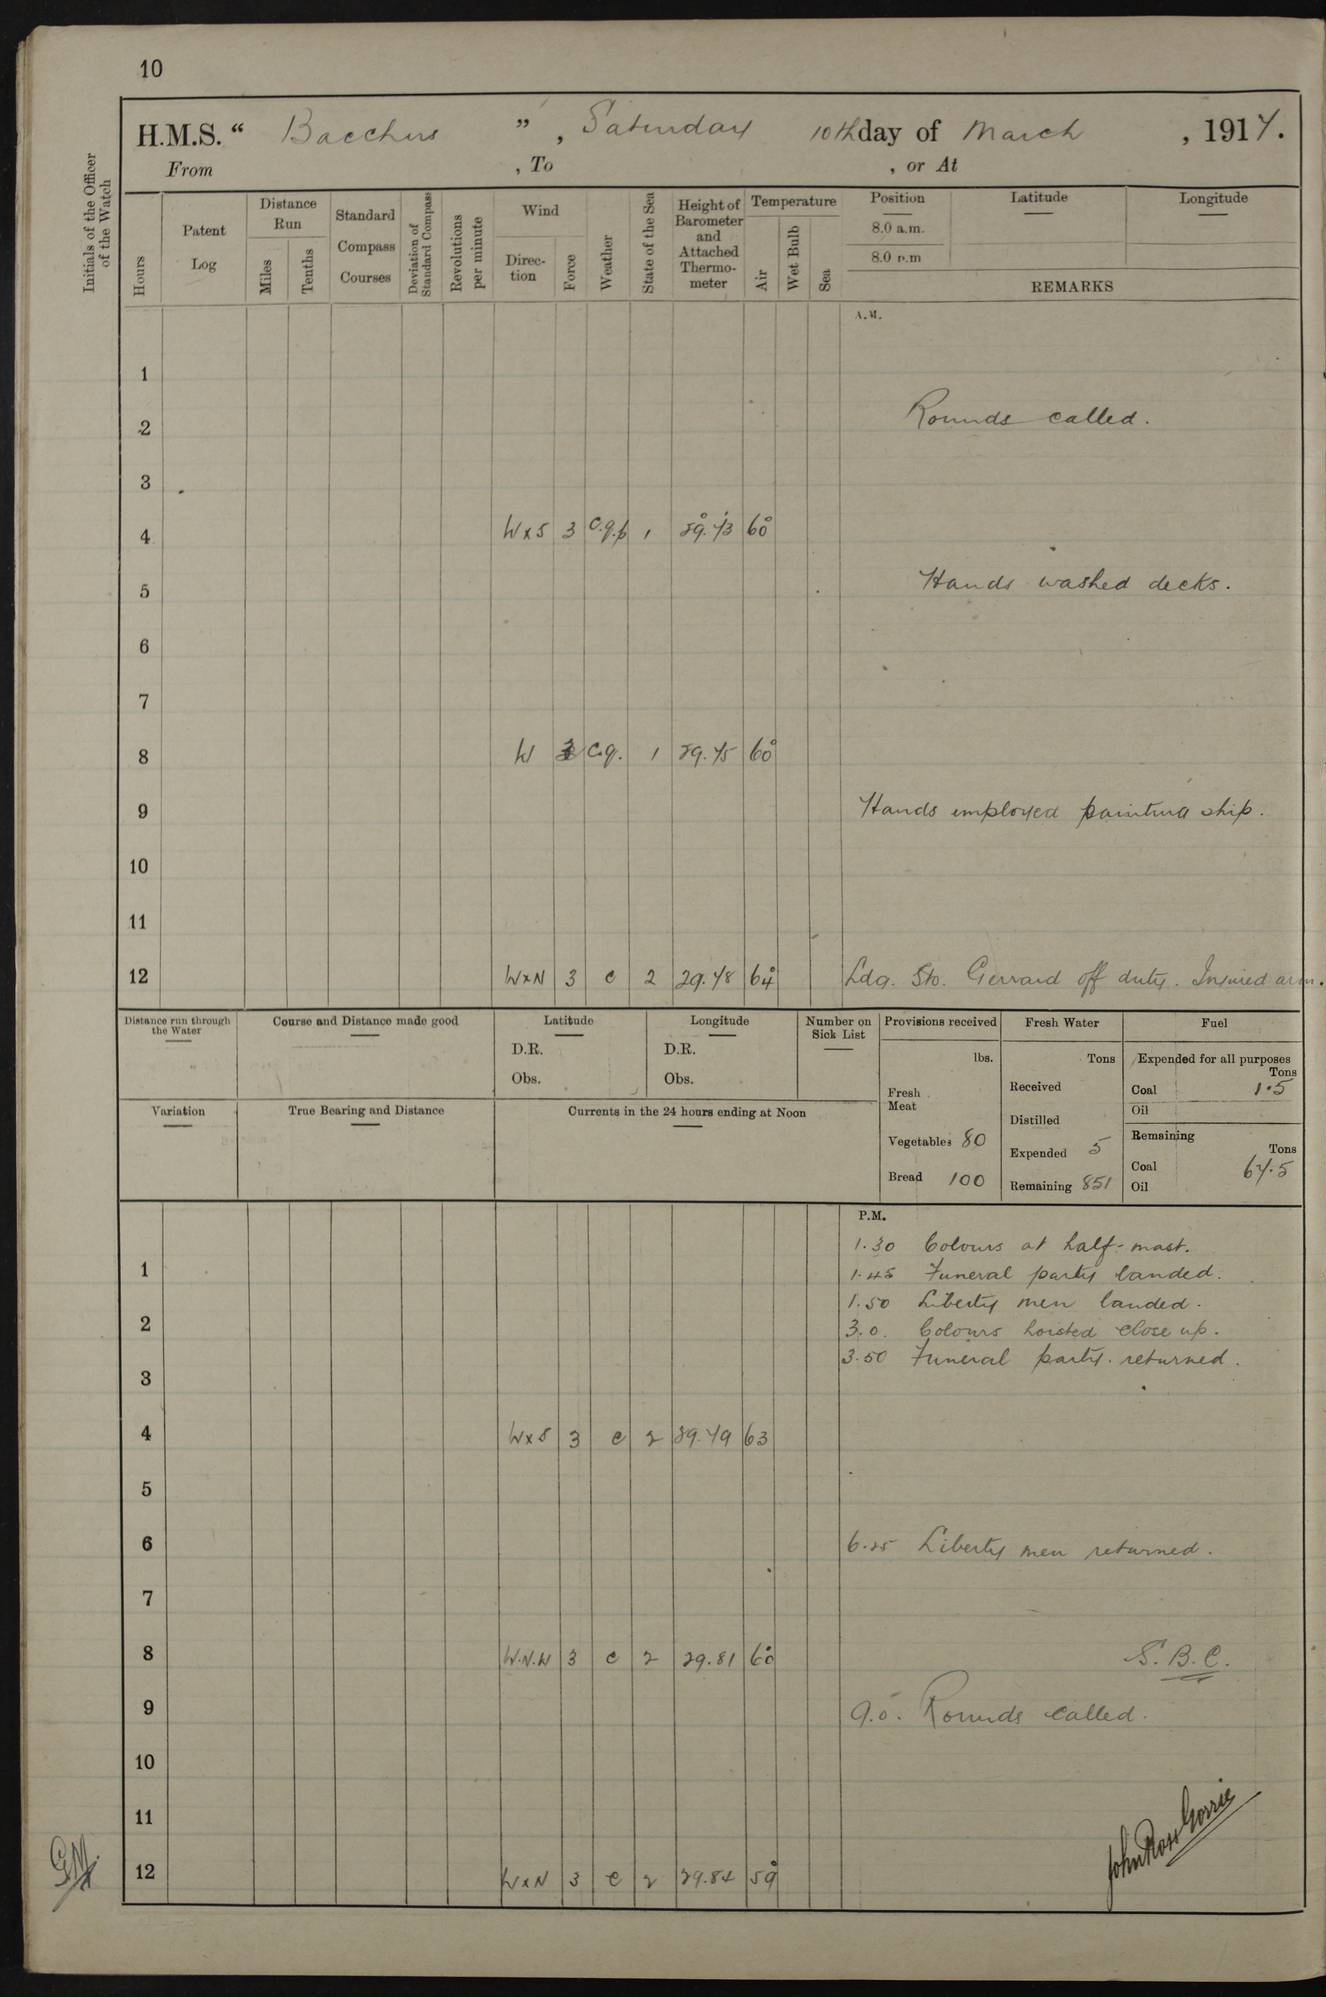 10
H.M.S. “ Bacchus ” , Saturday 10th day of March , 1917.
From , To , or At
Initials of the Officer of the Watch
Hours
Patent Log
Distance Run
Miles
Tenths
Standard Compass Courses
Deviation of Standard Compass
Revolutions per minute
Wind
Direc-tion
Force
Weather
State of the Sea
Height of Barometer and Attached Thermo-meter
Temperature
Air
Wet Bulb
Sea
Position
8.0 a.m.
8.0 p.m
Latitude
Longitude
REMARKS
A.M.
1
2 Rounds called.
3
4 W x S 3 c.q.p 1 29.73 60°
5 Hands washed decks.
6
7
8 W c.q. 1 29.75 60°
9 Hands employed painting ship.
10
11
12 W x N 3 c 2 29.78 64° Ldg. Sto. Gerrard off duty. Injured arm.
Distance run through the Water
Course and Distance made good
Latitude
D.R.
Obs.
Longitude
D.R.
Obs.
Number on Sick List
Provisions received
lbs.
Fresh Meat
Vegetables 80
Bread 100
Fresh Water
Tons
Received
Distilled
Expended 5
Remaining 851
Fuel
Expended for all purposes
Tons
Coal 1.5
Oil
Remaining
Tons
Coal 67.5
Oil
Variation
True Bearing and Distance
Currents in the 24 hours ending at Noon
P.M.
1.30 Colours at half-mast.
1 1.45 Funeral party landed.
1.50 Liberty men landed.
2 3.0. Colours hoisted close up.
3.50 Funeral party. returned.
3
4 W x S 3 c 2 29.79 63
5
6 6.25 Liberty men returned.
7
8 W.N.W 3 c 2 29.81 60° S.B.C.
9 9.0. Rounds called.
10
11
John Ross Gorrie
GM.
12 W x N 3 c 2 29.84 59°